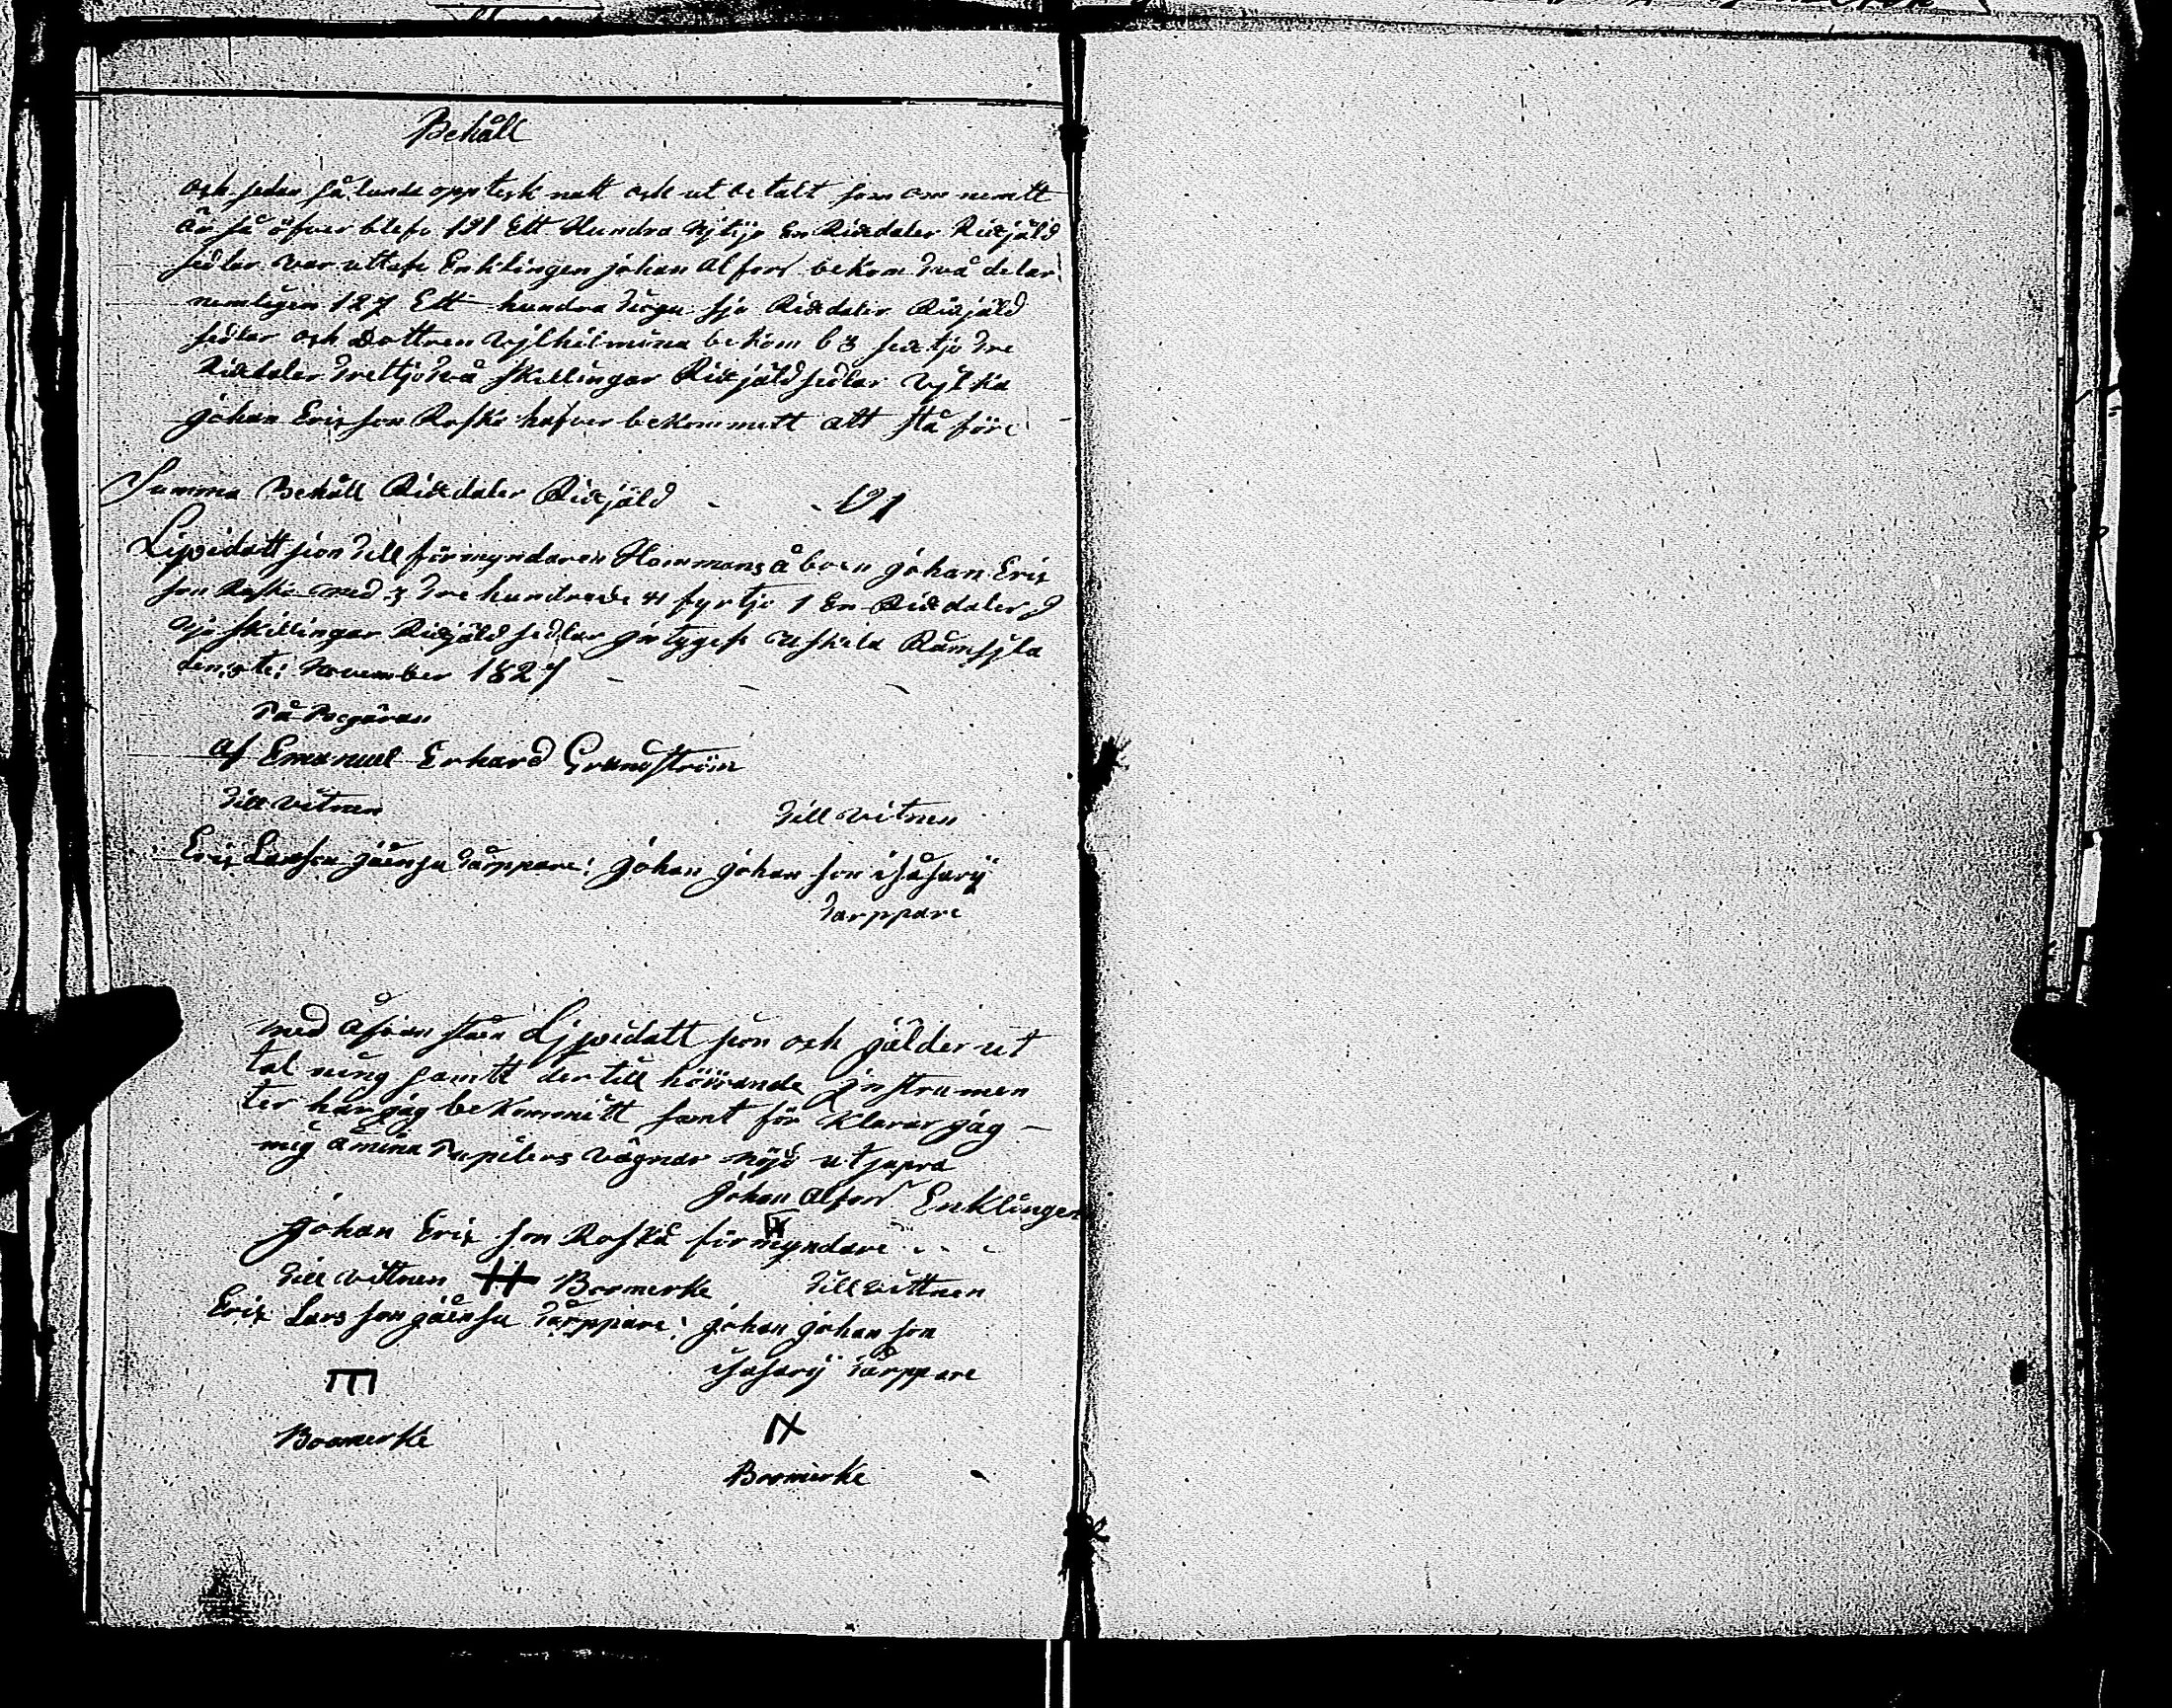 Behåll
och sedan så lunda opptesk natt och ut betalt som om nemtt
är så öfver blefv 191 Ett Hundra Njtijo En Rixdaler Rixjäld
sedlar var uttaf Enklingen johan Alfors bekom två delar
nemligen 127 Ett hundra tiugu sju Rixdaler Rixjäld
sedlar och Dottren Wjlhelmina bekom 63 sextjo tre
Rixdaler trettjo två skillingar Rixjäld sedlar Vjlka
johan Erix son Roska hafver bekommett att stå före
Summa Behåll Rixdaler Rixjäld 191
Lipvidatt sion till förmyndaren Hemmans åboen johan Erix
son Roska med 3 tre hundrade 41 fyrtjo 1 En Rixdaler
skillingar Rixjäld sedlar
den 3te November 1827
På Begäran
af Emanuel Erhard Grundström
Till vitnen Till vitnen
Erix Larsson tårppare: johan johan son
tarppare
med Afvan stån Ljpvidatt sion och jälder ut
tal ning samtt der till hörrande jn strumen
ter har jag bekommitt samt för klarar jag
mig å mina Pupilers vägnar nöjd
johan Alfors Enklingen
johan Erix son Roska förmyndare
Till vittnen Boomerke Till vittnen
Erix Lars son tårppare: johan johan son
tårppare
Boomerke
Boomerke